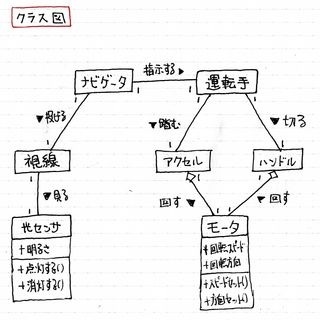 クラス図
指示する▶
ナビゲータ
運転手
▼投げる
▼踏む
▼切る
視線
アクセル
ハンドル
▼見る
回す▼
▼回す
光センサ
モータ
+明るさ
+点灯する()
+消灯する()
+回転スピード
+回転方向
+スピードセット()
+方向セット()